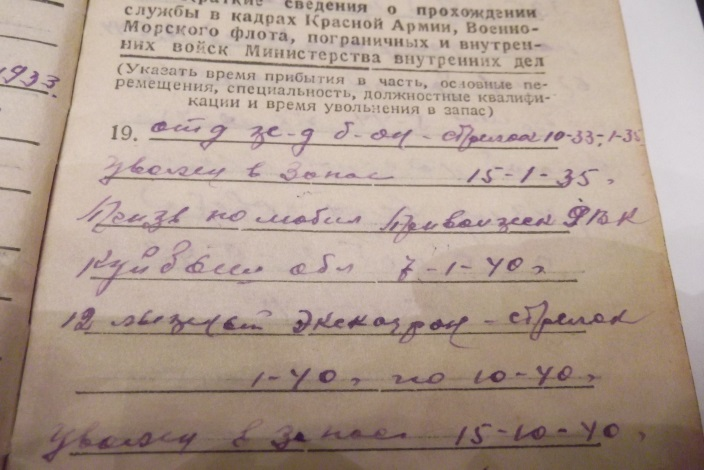 краткие сведения о прохождении
службы в кадрах Красной Армии, Военно-
Морского флота, пограничных и внутрен-
них войск Министерства внутренних дел
1933.
(Указать время прибытия в часть, основные пе-
ремещения, специальность, должностные квалифи-
кации и время увольнения в запас)
19. отд б-он - стрелок 10-33-1-35
уволен в запас 15-1-35.
Призв по мобил РВК
Куйбыш обл 7-1-40.
12 лыжный эскадрон - стрелок
1-40. по 10-40.
уволен в запас 15-10-40.